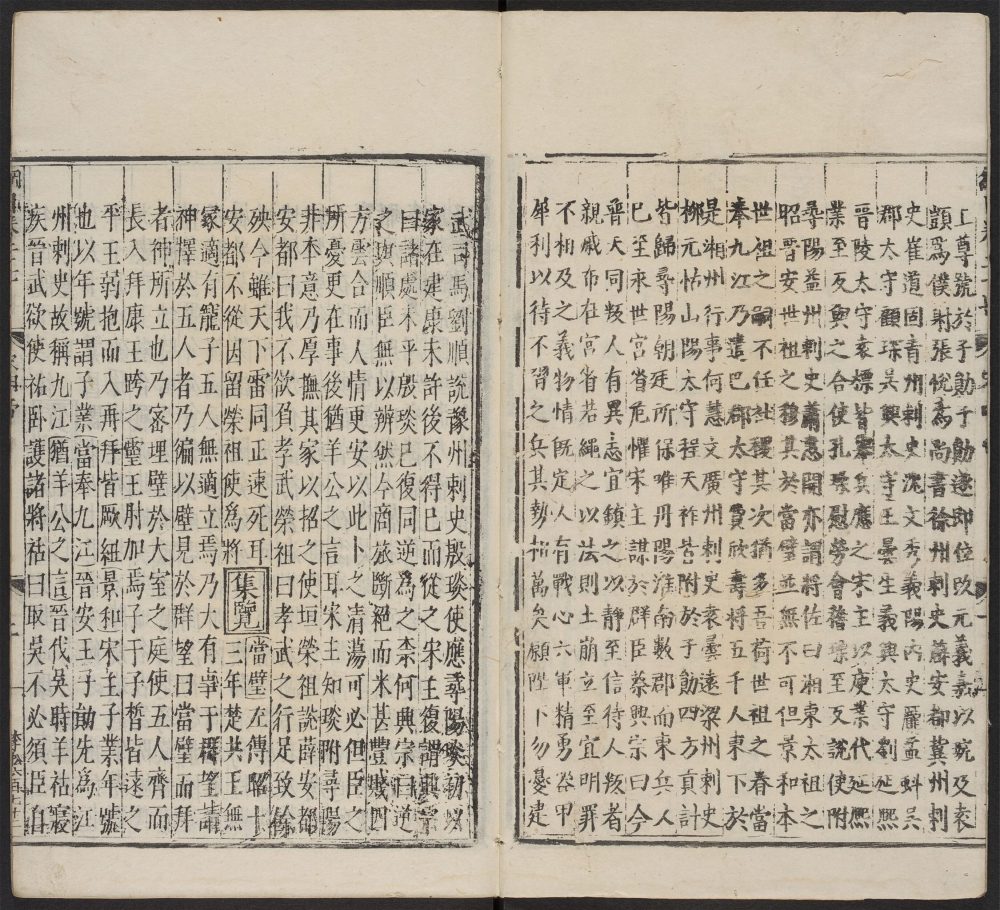 上尊號於子勛子勛遂即位改元義嘉以琬及袁
顗為僕射張悅為尚書徐州刺史薛安都冀州刺
史崔道固青州刺史沈文秀義陽內史龐孟蚪吳
郡太守顧琛吳興太守王曇生義興太守劉延熙
晉陵太守袁標皆舉兵應之宋主以庾業代延熙
業至反與之合使孔璪慰勞會稽璪至又說使附
尋陽益州刺史蕭惠開亦謂將佐曰湘東太祖之
昭晉安世祖之穆其於當璧並無不可但景和本
世祖之嗣不任社稷其次猶多吾荷世祖之眷當
奉九江乃遣巴郡太守費欣壽將五千人東下於
是湘州行事何慧文廣州刺史袁曇遠梁州刺史
柳元怙山陽太守程天祚皆附於子勛四方貢計
皆歸尋陽朝廷所保唯丹陽淮南數郡而東兵人
已至永世宮省危懼宋主謀於群臣蔡興宗曰今
普天同叛人有異志宜鎮之以靜至信待人叛者
親戚布在宮省若繩之以法則土崩立至宜明罪
不相及之義物情既定人有戰心六軍精勇器甲
犀利以待不習之兵其勢相萬矣願陛下勿憂建
武司馬劉順說豫州刺史殷琰使應尋陽琰初以
家在建康未許後不得已而從之宋主復謂興宗
曰諸處未平殷琰已復同逆為之柰何興宗曰逆
之與順臣無以辨然今商旅斷絕而米甚豐賤四
方雲合而人情更安以此卜之清蕩可必但臣之
所憂更在事後猶羊公之言耳宋主知琰附尋陽
非本意乃厚撫其家以招之使垣榮祖說薛安都
安都曰我不欲負孝武榮祖曰孝武之行足致餘
殃今雖天下雷同正速死耳當璧左傳昭十
安都不從因留榮祖使為將集覽三年楚共王無
冢適有寵子五人無適立焉乃大有事于群望請
神擇於五人者乃徧以璧見於群望曰當璧而拜
者神所立也乃密埋璧於大室之庭使五人齊而
長入拜康王跨之靈王肘加焉子干子晳皆遠之
平王弱抱而入再拜皆厭紐景和宋主子業年號
也以年號謂子業當奉九江晉安王子勛先為江
州刺史故稱九江猶羊公之言晉伐吳時羊祜寢
疾晉武欲使祜臥護諸將祜曰取吳不必須臣自